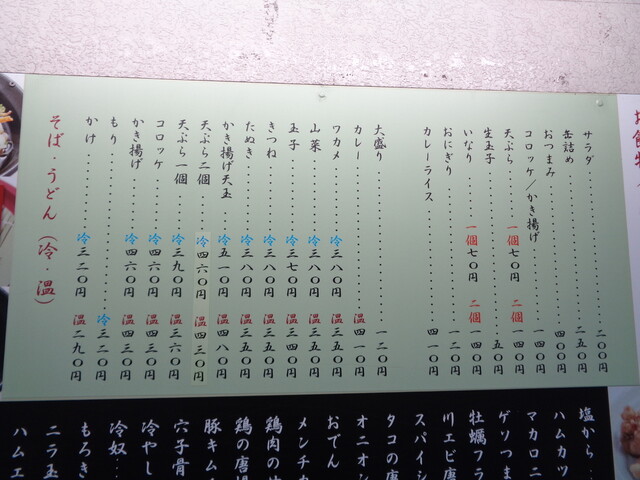 サラダ 二〇〇円
缶詰め 二五〇円
おつまみ 四〇〇円
コロッケ/かき揚げ 一四〇円
天ぷら 一個七〇円 二個一四〇円
生玉子 五〇円
いなり 一個七〇円 二個一四〇円
おにぎり 一二〇円
カレーライス 四一〇円
大盛り 一二〇円
カレー 温四一〇円
ワカメ 冷三八〇円 温三五〇円
山菜 冷三八〇円 温三五〇円
玉子 冷三七〇円 温三四〇円
きつね 冷三八〇円 温三五〇円
たぬき 冷三八〇円 温三五〇円
かき揚げ天玉 冷五一〇円 温四八〇円
天ぷら二個 冷四六〇円 温四三〇円
天ぷら一個 冷三九〇円 温三六〇円
コロッケ 冷四六〇円 温四三〇円
かき揚げ 冷四六〇円 温四三〇円
もり 冷三二〇円
かけ 冷三二〇円 温二九〇円
そば・うどん(冷・温)
塩から
ハムカツ
マカロニ
ゲソつま
牡蠣フラ
川エビ唐
スパイシ
タコの唐
オニオン
おでん
メンチカ
鶏肉の
鶏の唐揚
豚キム
穴子骨
冷やし
冷奴
もろき
ニラ玉
ハムエ